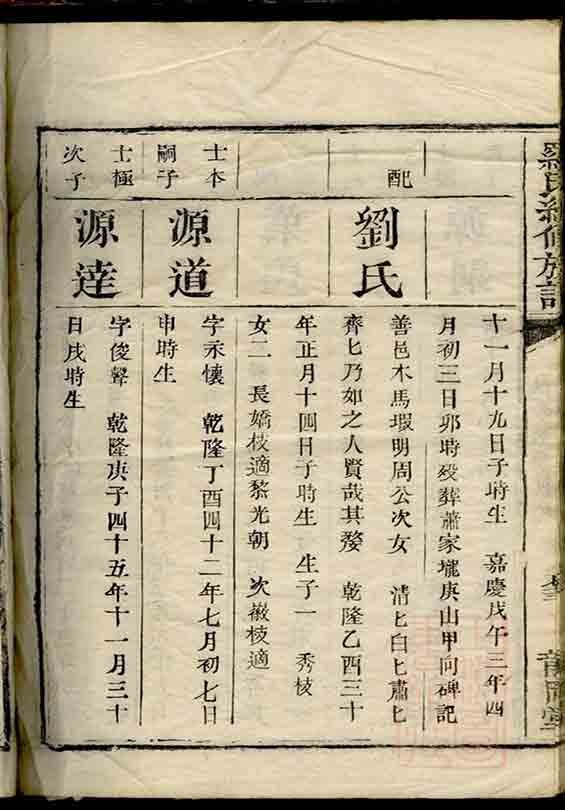 羅氏續修族譜
十一月十九日子時生 嘉慶戊午三年四
月初三日卯時殁葬蕭家壠庚山甲向碑記
配
劉氏
善邑木馬瑕明周公次女 清匕白匕肅匕
齊匕乃如之人賢哉其婺 乾隆乙酉三十
年正月十四日子時生 生子一 秀枝
女二 長嬌枝適黎光朝 次徽枝適
士本
嗣子
源道
字永懷 乾隆丁酉四十二年七月初七日
申時生
士極
次子
源達
字俊聲 乾隆庚子四十五年十一月三十
日戌時生